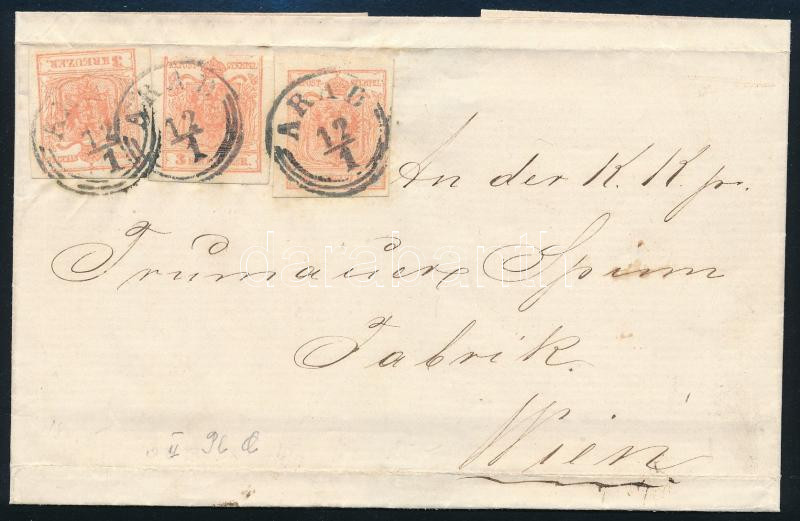 3 KREUZER.
ARAD
12/1
ARAD
12/1
ARAD
12/1
An der K. K. pr.
Trumauer Spinn
Fabrik.
Wien
darabanth